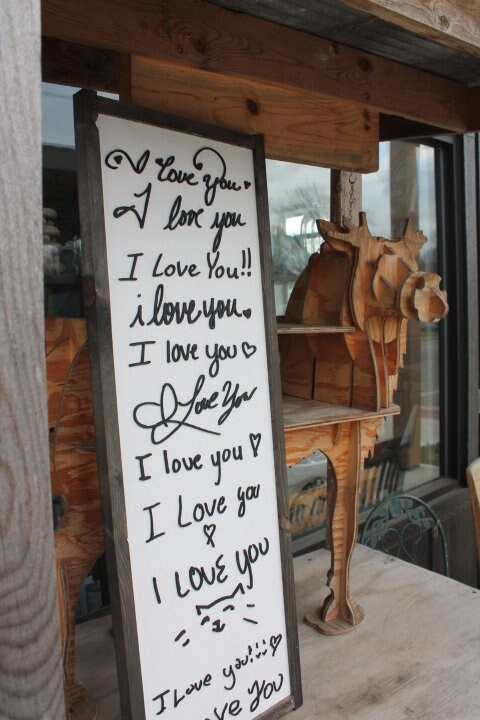 I love you.
I love you
I Love You!!
i love you.
I love you
I Love You
I love you
I Love you
I LOVE YOU
I Love you!!!!
ove You